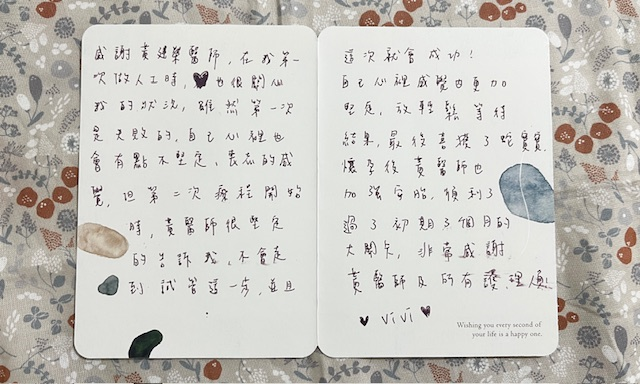 感謝黃建榮醫師，在我第一
次做人工時，♥也很關心
我的狀況，雖然第一次
是失敗的，自己心裡也
會有點不堅定、喪志的感
覺，但第二次療程開始
時，黃醫師很堅定
的告訴我，不會走
到試管這一步，並且
這次就會成功！
自己心裡感覺也更加
堅定，放輕鬆等待
結果，最後喜獲了蛇寶寶
懷孕後黃醫師也
加強安胎，順利了
過了初期3個月的
大關卡，非常感謝
黃醫師及所有護理人員!!
♥ ViVi ♥
Wishing you every second of
your life is a happy one.